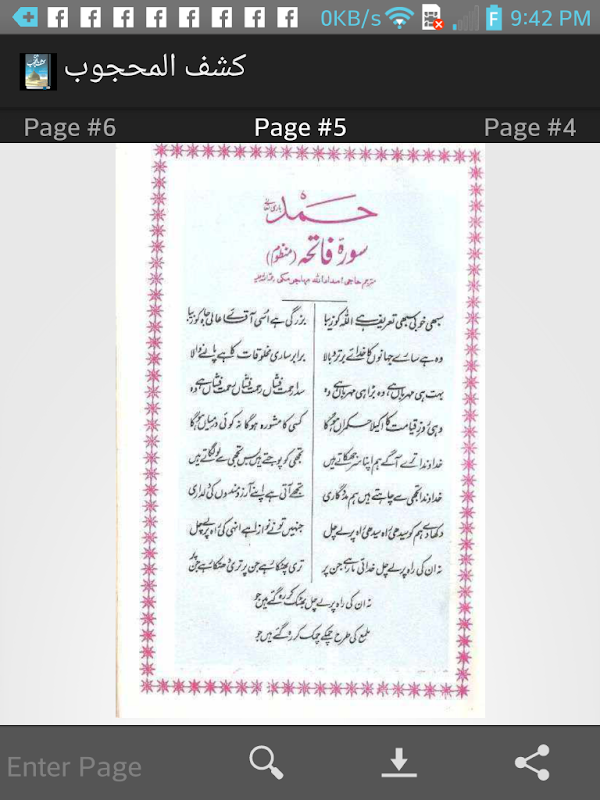 0KB/s 9:42 PM
كشف المحجوب
Page #6 Page #5 Page #4
حمد باری تعالیٰ
سورۂ فاتحہ (منظوم)
مترجم حاجی امداد اللہ مہاجر مکی
سبھی خوبی سبھی تعریف ہے اللہ کو زیبا بزرگی ہے اُسی آقائے عالی جاہ کو زیبا
وہ ہے سارے جہانوں کا خدائے برتر و بالا برابر ساری مخلوقات کا ہے پالنے والا
بہت ہی مہرباں ہے، وہ بڑا ہی مہرباں ہے وہ سدا رحمت فشاں رحمت فشاں رحمت فشاں ہے وہ
وہی روزِ قیامت کا اکیلا حکمراں ہوگا کسی کا مشورہ ہوگا نہ کوئی درمیاں ہوگا
خداوندا ترے آگے ہم اپنا سر جھکاتے ہیں تجھی کو پوجتے ہیں بس تجھی سے لو لگاتے ہیں
خداوندا تجھی سے چاہتے ہیں ہم مددگاری تجھے آتی ہے اپنے آرزومندوں کی دلداری
دکھا دے ہم کو سیدھی راہ سیدھی راہ پر لے چل جنہیں تو نے نوازا ہے انہی کی راہ پر لے چل
نہ ان کی راہ پر لے چل خدائی مار ہے جن پر تری پھٹکار ہے جن پر تری دھتکار ہے جن پر
نہ ان کی راہ پر لے چل بھٹک کر رہ گئے ہیں جو
ملمع کی طرح چمکے چمک کر رہ گئے ہیں جو
Enter Page